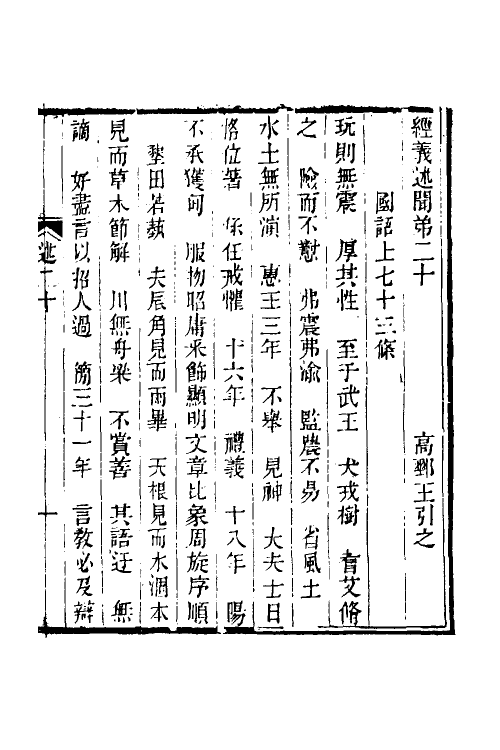 經義述聞弟二十　高郵王引之
國語上七十三條
玩則無震　厚其性　至于武王　犬戎樹　耆艾脩
之　險而不懟　弗震弗渝　監農不易　省風土
水土無所演　惠王三年　不舉　見神　大夫士日
恪位著　係任戒懼　十六年　禮義　十八年　陽
不承獲甸　服物昭庸采飾顯明文章比象周旋序順
墾田若蓺　夫辰角見而雨畢　天根見而水涸本
見而草木節解　川無舟梁　不賞善　其語迂　無
謫　好盡言以招人過　簡三十一年　言教必及辯
述二十　一